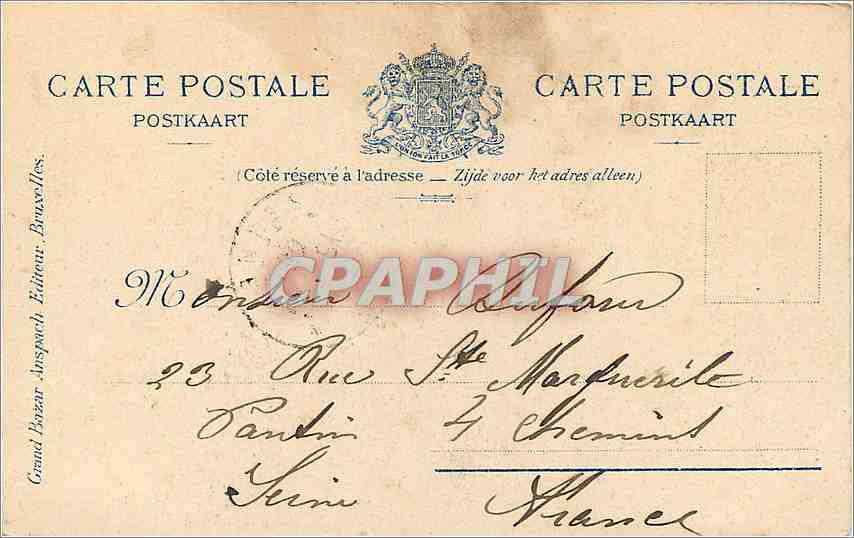 CARTE POSTALE
POSTKAART
L'UNION FAIT LA FORCE
CARTE POSTALE
POSTKAART
(Côté réservé à l'adresse — Zijde voor het adres alleen)
Grand Bazar Anspach Editeur, Bruxelles.
CPAPHIL
Monsieur Dufour
23 Rue Ste Marguerite
Pantin 4 Chemins
Seine France